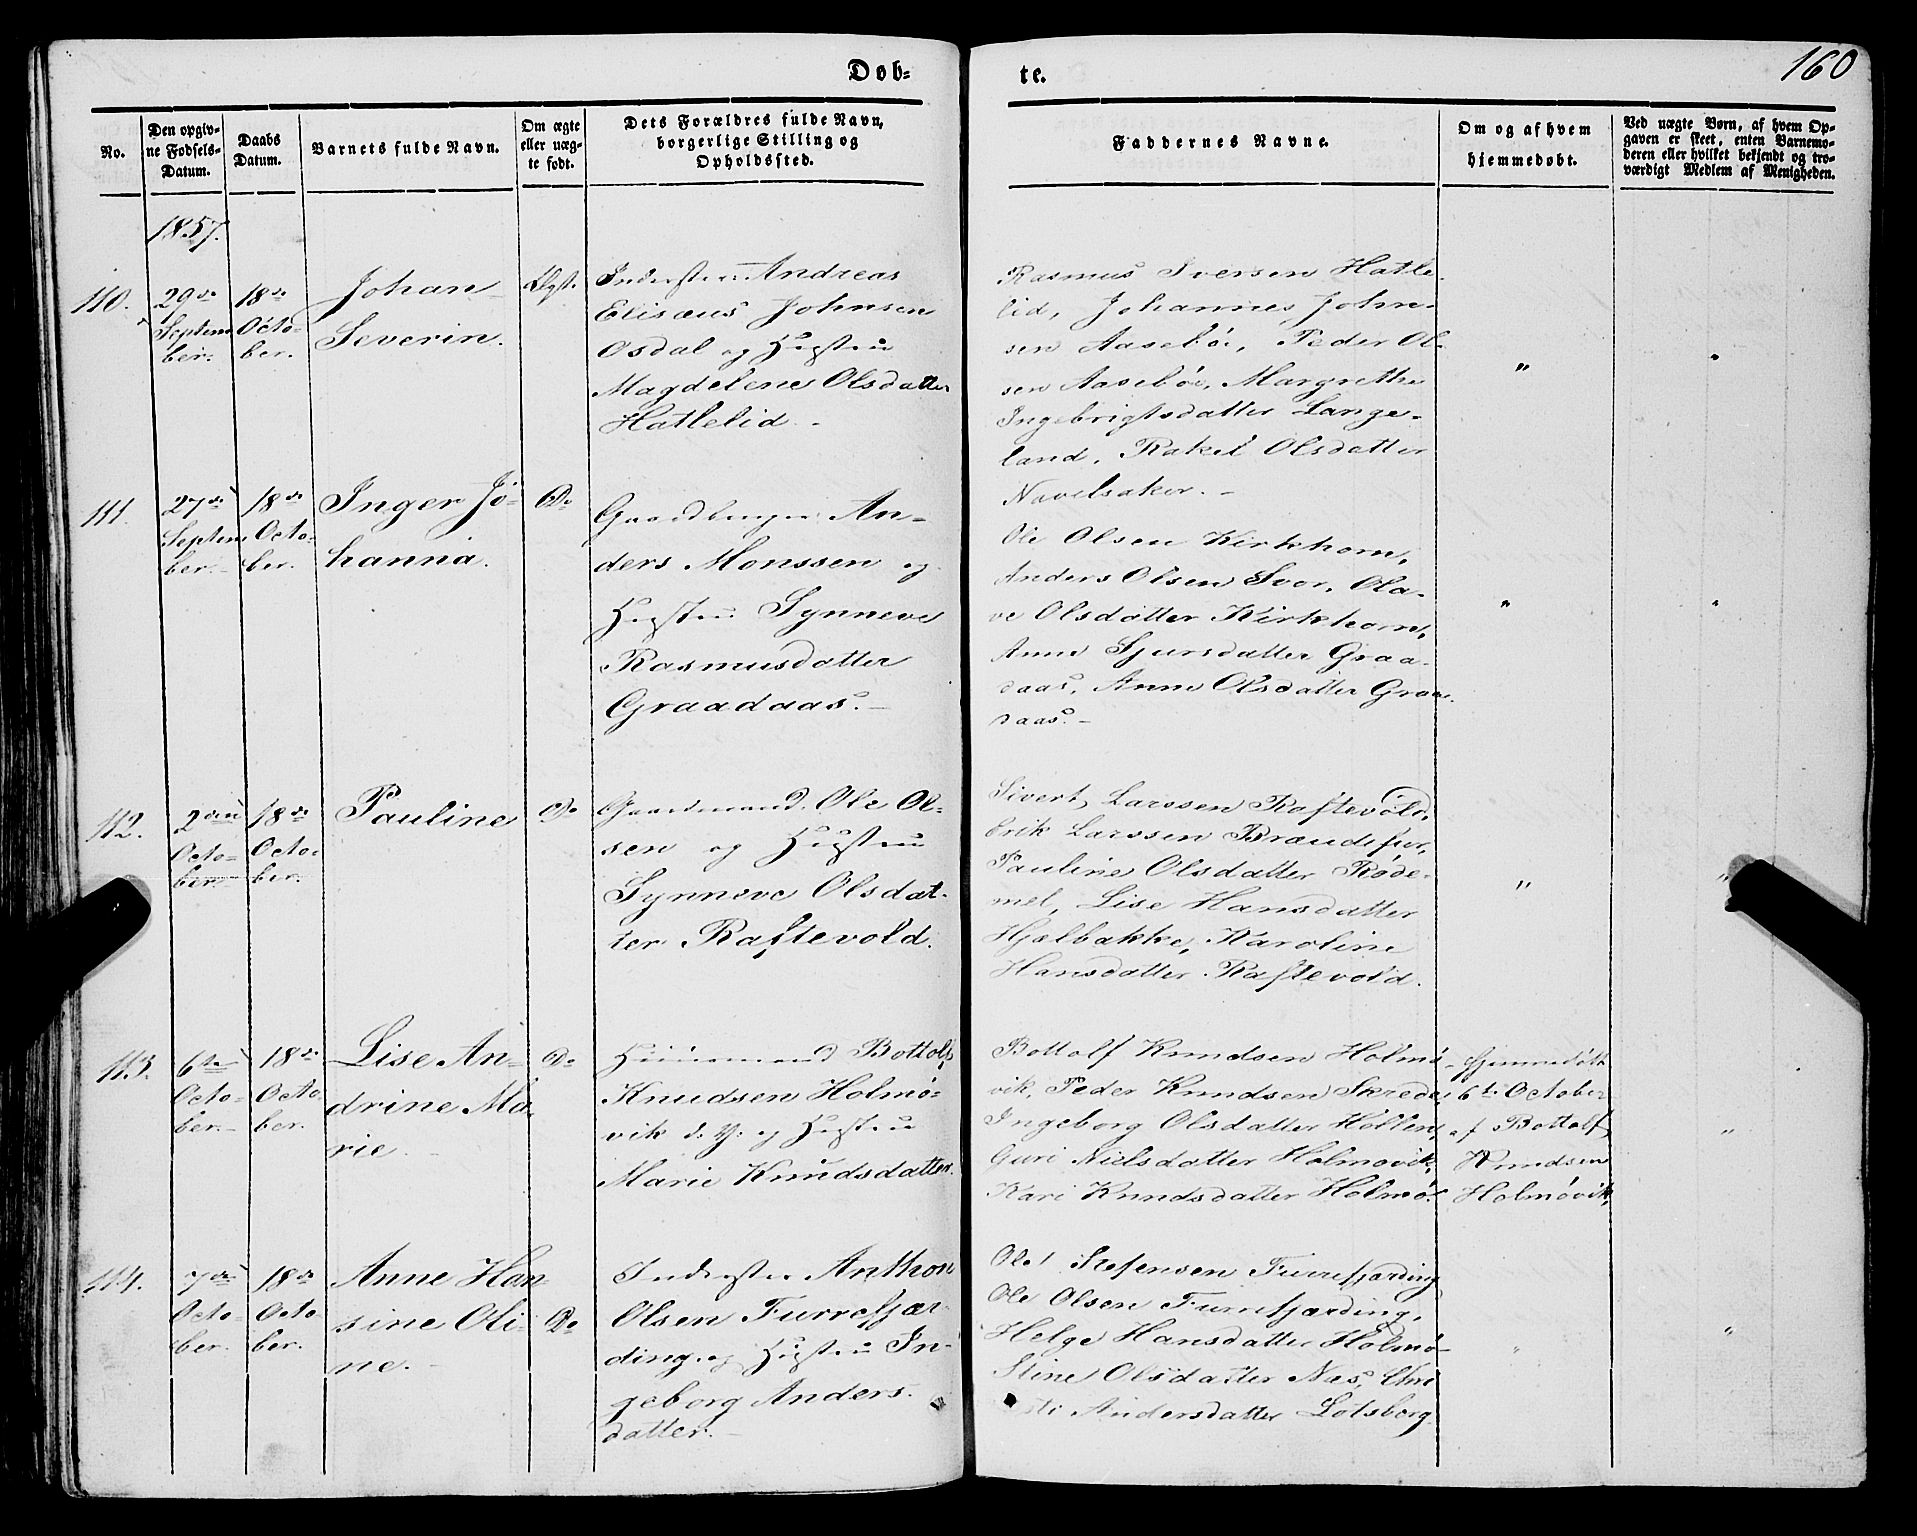 Døb=
te.
160
No.
Den opgiv=
ne Fødsels=
Datum.
Daabs
Datum.
Barnets fulde Navn.
Om ægte
eller uæg=
te født.
Dets Forældres fulde Navn,
borgerlige Stilling og
Opholdssted.
Faddernes Navne.
Om og af hvem
hjemmedøbt.
Ved uægte Børn, af hvem Op=
gaven er skeet, enten Barnemo=
deren eller hvilket bekjendt og tro=
værdigt Medlem af Menigheden.
1857.
110.
29de
Septem
ber.
18de
Octo=
ber.
Johan
Severin.
Ægt.
Andreas
Elisæus Johnsen
Osdal og Hustru
Magdelene Olsdatter
Hatlelid.
Rasmus Iversen Hatle=
lid, Johannes John=
sen Aasebøe, Peder Ol=
sen Aasebøe, Margrethe
Ingebrigtsdatter Lange=
land, Rakel Olsdatter
Navelsaker.
"
"
111.
27de
Septem
ber.
18de
Octo=
ber.
Inger Jo=
hanna.
Do
Gaardbruger An=
ders Monssen og
Hustru Synneve
Rasmusdatter
Graadaas.
Ole Olsen Kirkhorn,
Anders Olsen Svor, Ola=
ve Olsdatter Kirkhorn,
Anne Sjursdatter Graa=
daas, Anne Olsdatter Graa=
daas.
"
"
112.
2den
Octo=
ber.
18de
Octo=
ber.
Pauline
Do
Gaardmand Ole Ol=
sen og Hustru
Synneve Olsdat=
ter Raftevold.
Sivert Larssen Raftevold,
Erik Larssen
Pauline Olsdatter Røde=
mel, Lise Hansdatter
Hjelbakke, Karoline
Hansdatter Raftevold.
"
"
113.
6te
Octo=
ber.
18de
Octo
ber.
Lise An=
drine Ma=
rie.
Do
Huusmand Bottolf
Knudsen Holmø=
vik d. y. og Hustru
Marie Knudsdatter.
Bottolf Knudsen Holmø=
vik, Peder Knudsen Skrede,
Ingeborg Olsdatter Hollen,
Guri Nielsdatter Holmøvik,
Kari Knudsdatter Holmø.
Hjemmedøbt
6te October
af Bottolf
Knudsen
Holmøvik.
"
114.
7de
Octo=
ber.
18de
Octo
ber.
Anne Han
sine Oli=
ne.
Do
Anthon
Olsen Furrefjær=
ding og Hustru In=
geborg Anders=
datter.
Ole Stefensen Furrefjærding
Ole Olsen Furrefjærding,
Helge Hansdatter Holmø=
Stine Olsdatter Næs, Chri
sti Andersdatter Lotsberg
"
"